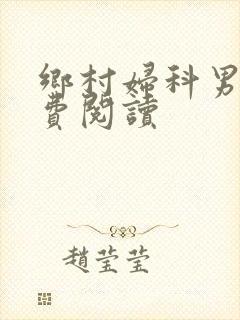 鄉村婦科男
費閱讀
趙莹莹